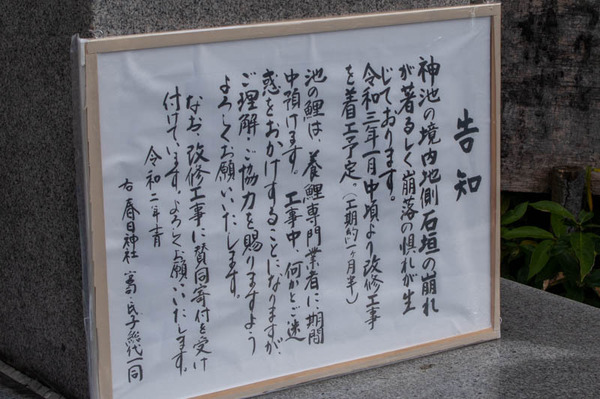 告知
神池の境内地側石垣の崩れ
が著るしく崩落の惧れが生
じております。
令和三年一月中頃より改修工事
を着工予定。(工期約一ヶ月半)
池の鯉は、養鯉専門業者に期間
中預けます。工事中、何かとご迷
惑をおかけすることになりますが
ご理解・ご協力を賜りますよう
よろしくお願いいたします。
なお、改修工事に賛同寄付を受け
付けています。よろしくお願いいたします。
令和二年
春日神社 氏子総代一同